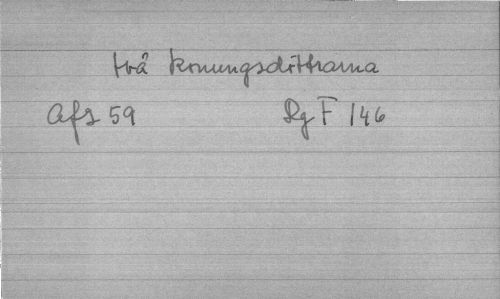 två konungsdöttrarna
Afs 59 Rg F 146